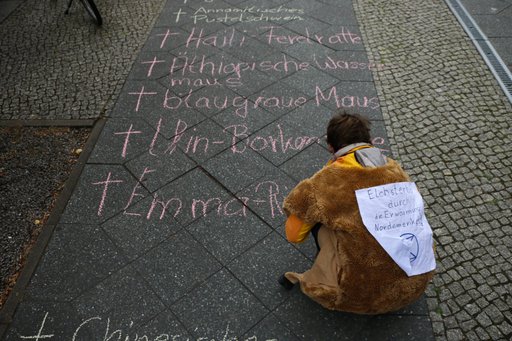 † Annamitisches
Pustelschwein
† Haiti Ferdratte
† Äthiopische Wasser
maus
† blaugraue Maus
† Ilin-Borken
† Emma-R
† Chin
Elche sterben
durch
die Erwärmung
Nordamerikas